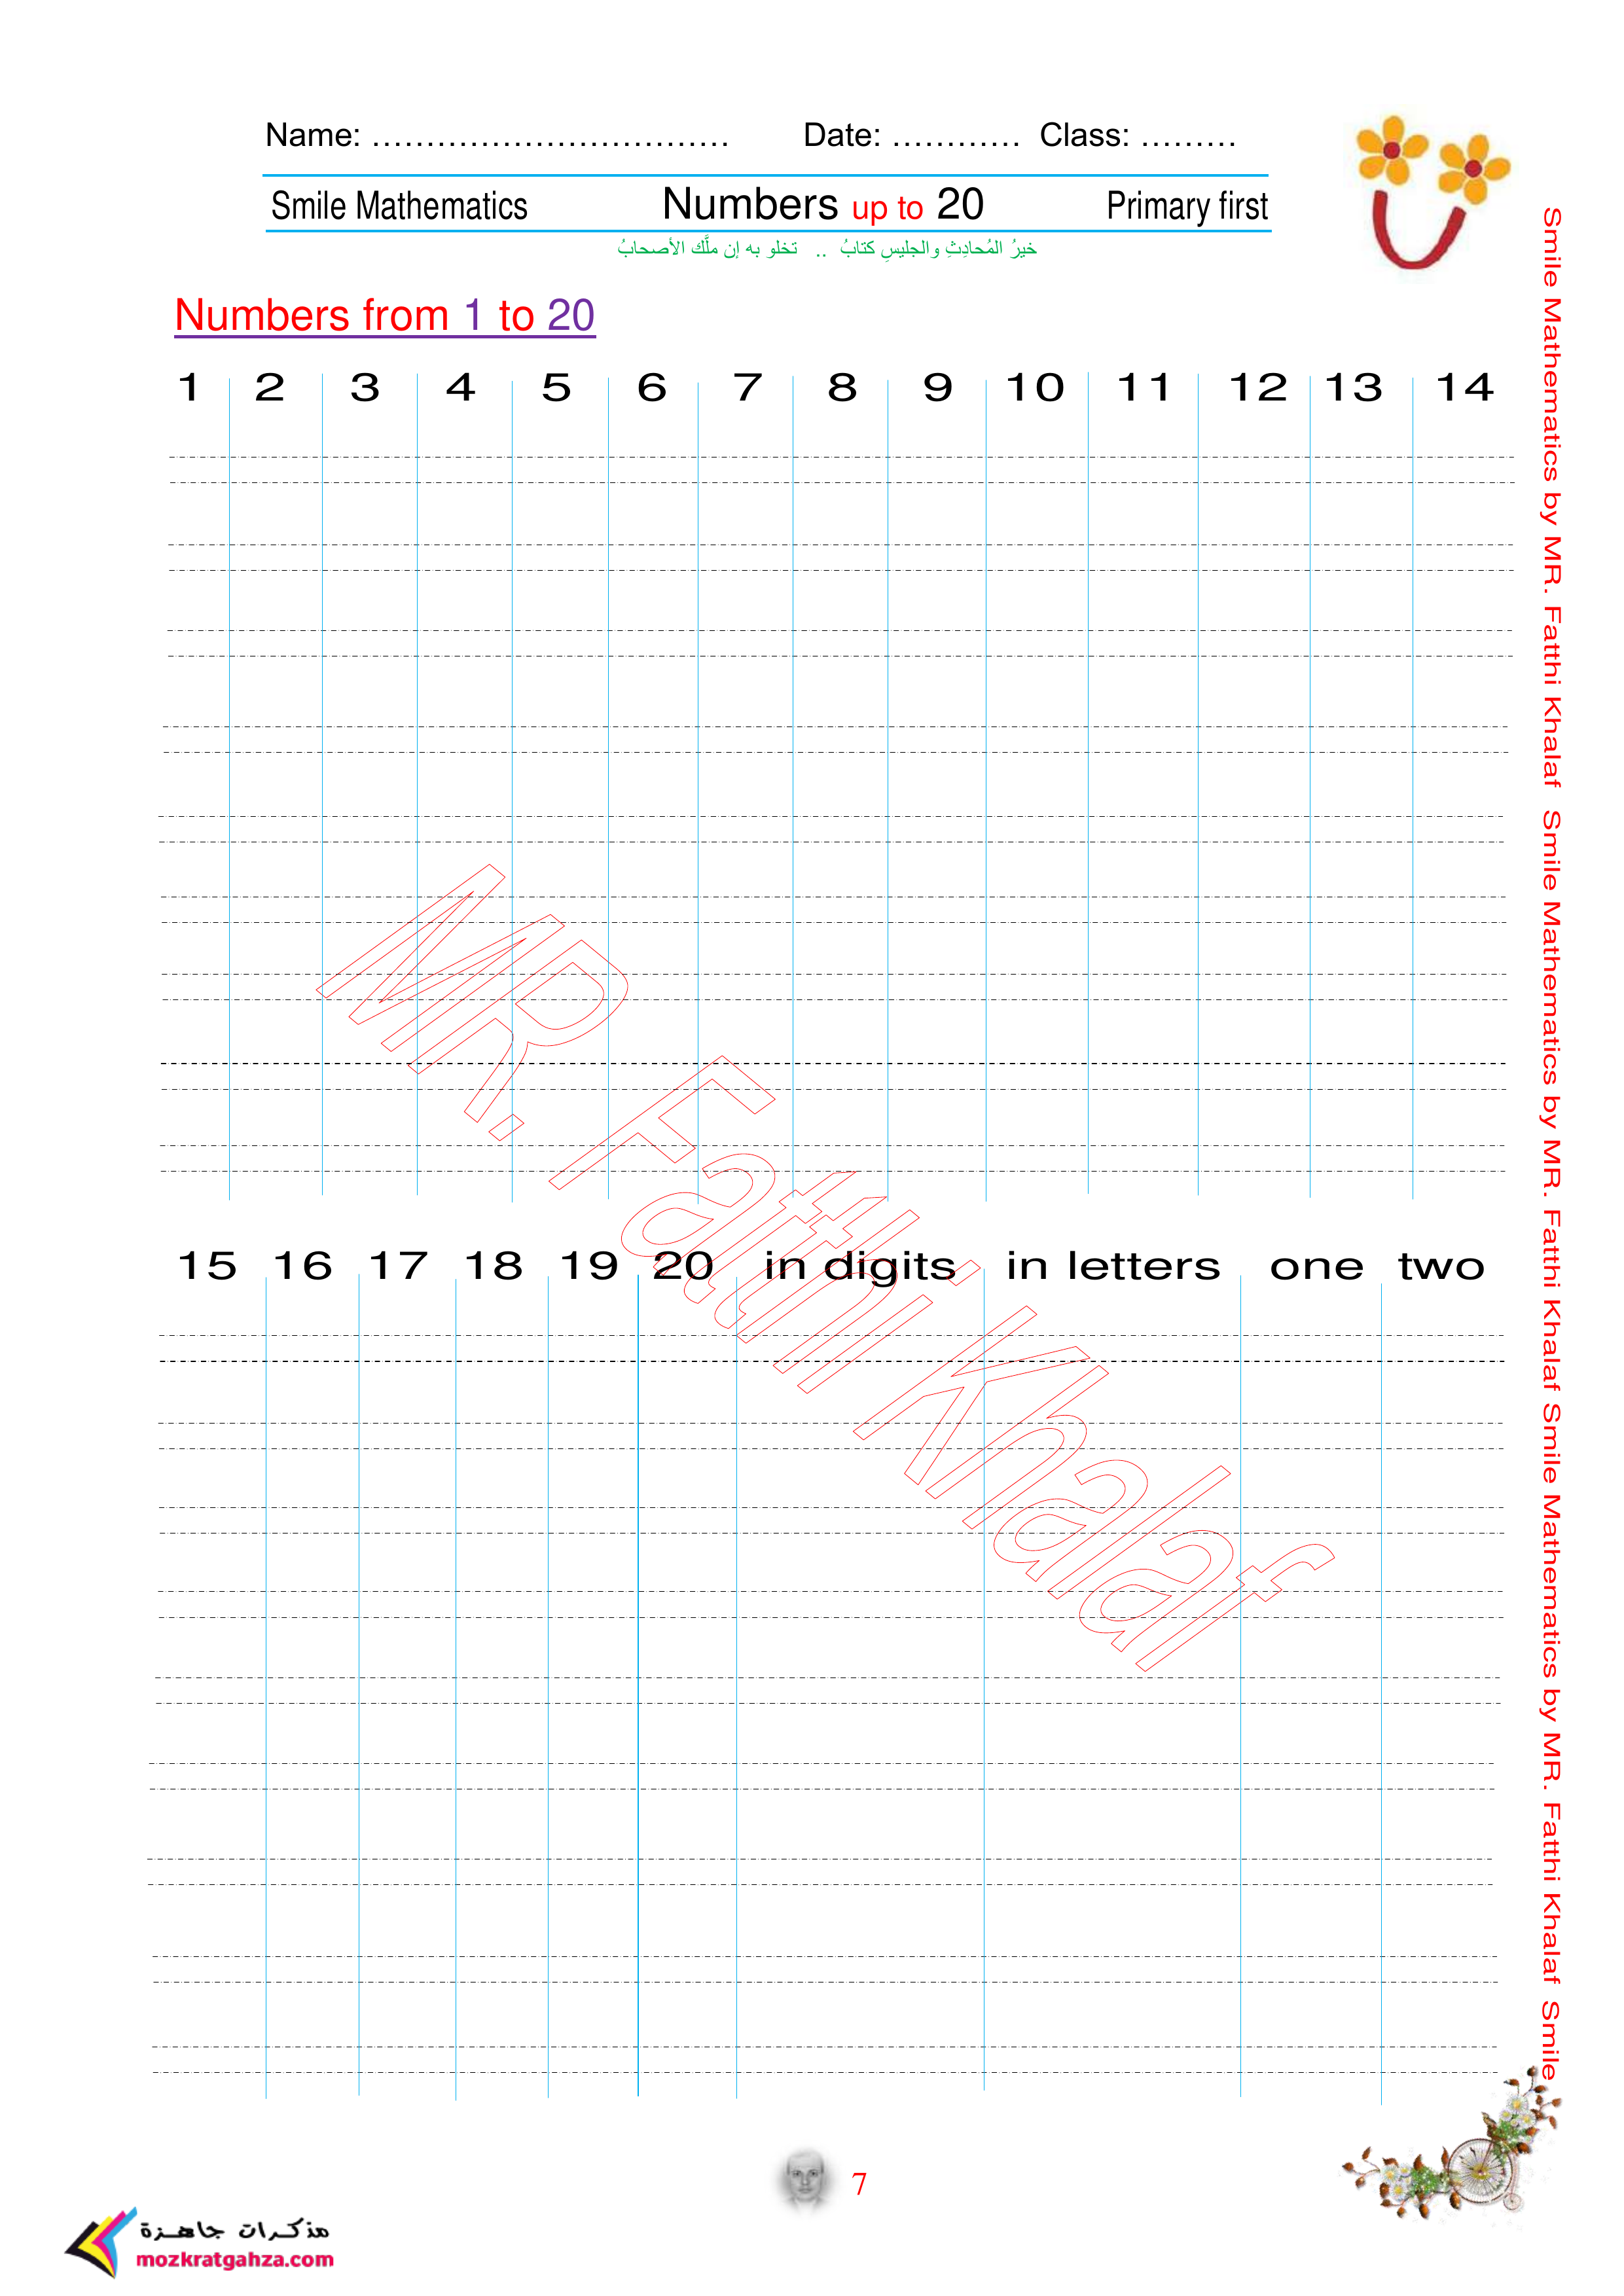 Name: ................................. Date: ............ Class: .........
Smile Mathematics Numbers up to 20 Primary first
خيرُ المُحادِثِ والجليسِ كتابُ .. تخلو به إن ملَّك الأصحابُ
Numbers from 1 to 20
1 2 3 4 5 6 7 8 9 10 11 12 13 14
MR. Fatthi Khalaf
15 16 17 18 19 20 in digits in letters one two
Smile Mathematics by MR. Fatthi Khalaf Smile Mathematics by MR. Fatthi Khalaf Smile Mathematics by MR. Fatthi Khalaf Smile
7
مذكرات جاهزة
mozkratgahza.com